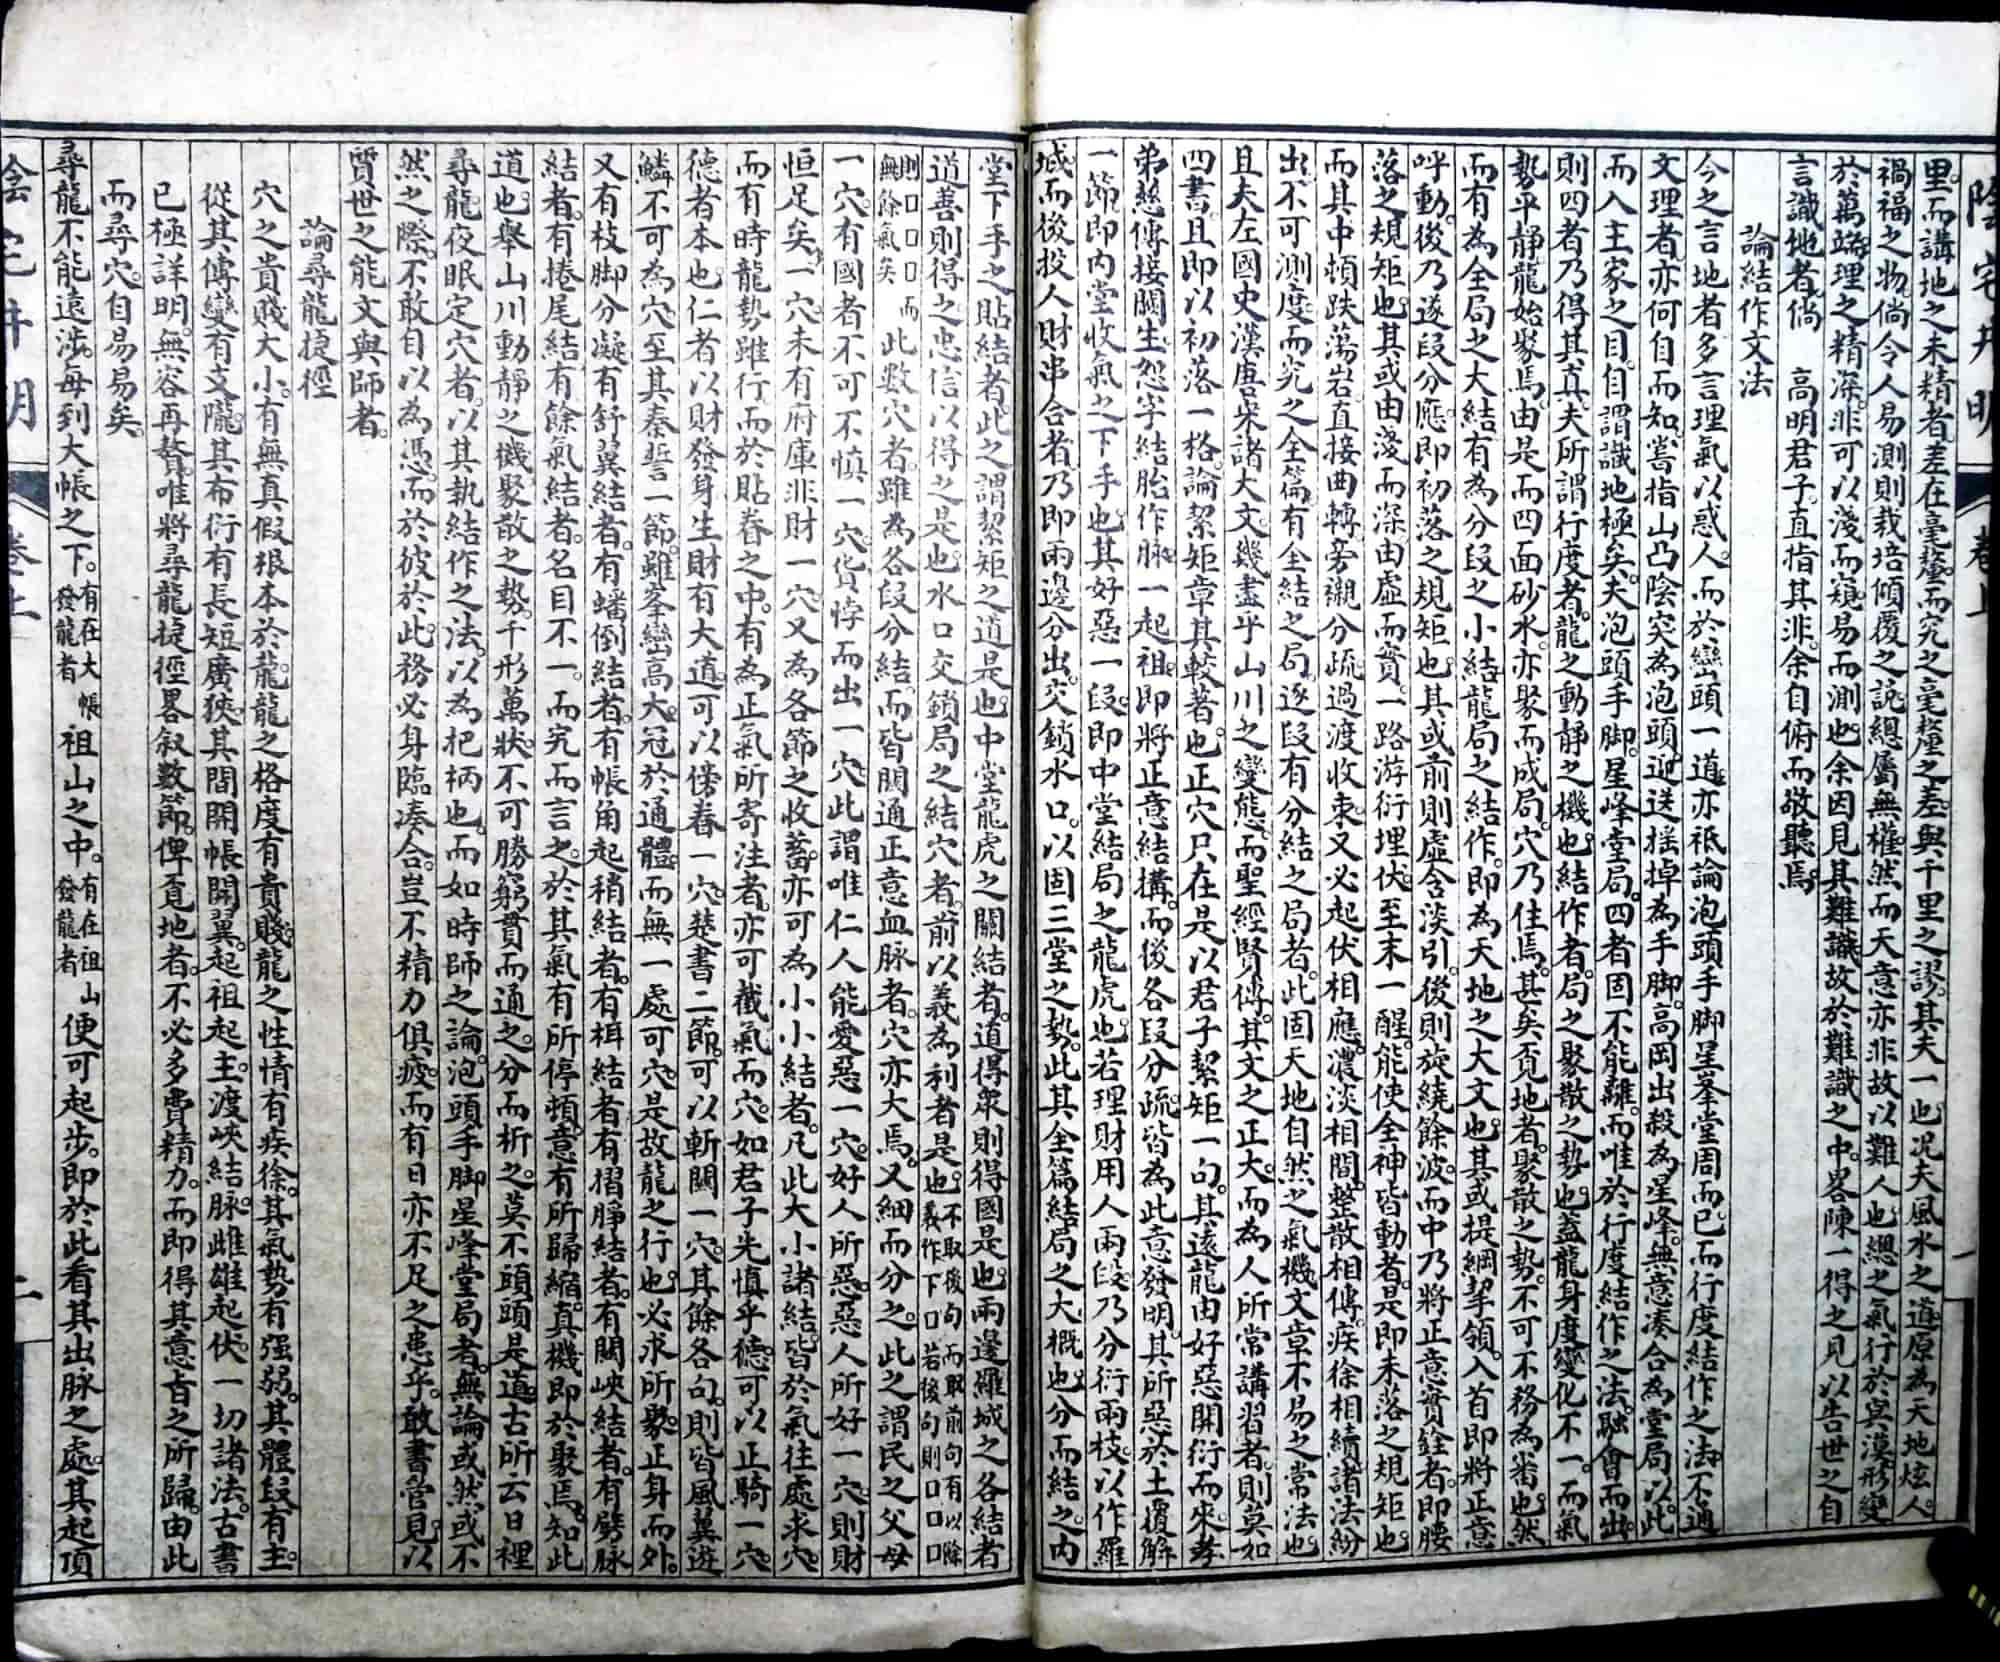 陰宅井明 卷上 一
里而講地之未精者差在毫釐而究之毫釐之差與千里之謬其夫一也况夫風水之道原為天地炫人
禍福之物倘令人易測則栽培傾覆之說總屬無權然而天意亦非故以難人也總之氣行於㝠漠形變
於萬端理之精深非可以淺而窺易而測也余因見其難識故於難識之中畧陳一得之見以告世之自
言識地者倘 高明君子直指其非余自俯而敬聽焉
論結作文法
今之言地者多言理氣以惑人而於巒頭一道亦袛論泡頭手脚星峯堂周而已而行度結作之法不通
文理者亦何自而知嘗指山凸陰突為泡頭迎送摇掉為手脚高岡出殺為星峰無意湊合為堂局以此
而入主家之目自謂識地極矣夫泡頭手脚星峰堂局四者固不能離而唯於行度結作之法融會而出
則四者乃得其真夫所謂行度者龍之動靜之機也結作者局之聚散之勢也盖龍身度變化不一而氣
勢平靜龍始聚焉由是而四面砂水亦聚而成局穴乃住焉甚矣覓地者聚散之勢不可不務為畨也然
而有為全局之大結有為分段之小結龍局之結作即為天地之大文也其或提綱挈領入首即將正意
呼動後乃遂段分應即初落之規矩也其或前則虛含淡引後則旋繞餘波而中乃將正意實銓者即腰
落之規矩也其或由淺而深由虛而實一路游衍埋伏至末一醒能使全神皆動者是即末落之規矩也
而其中頓跌蕩岩直接曲轉旁襯分疏過渡收束又必起伏相應濃淡相間整散相傳疾徐相續諸法紛
出不可測度而究之全篇有全結之局逐段有分結之局者此固天地自然之氣機文章不易之常法也
且夫左國史漢唐宋諸大文幾盡乎山川之變態而聖經賢傳其文之正大而為人所常講習者則莫如
四書且即以初落一格論絜矩章其較著也正穴只在是以君子絜矩一句其遠龍由好惡開衍而來孝
弟慈傳接關生恕字結胎作脉一起祖即將正意結搆而後各段分疏皆為此意發明其所惡於土覆解
一節即內堂收氣之下手也其好惡一段即中堂結局之龍虎也若理財用人兩段乃分衍兩枝以作羅
城而後投人財串合者乃即兩邊分出交鎖水口以固三堂之勢此其全篇結局之大概也分而結之內
堂下手之貼結者此之謂絜矩之道是也中堂龍虎之關結者道得眾則得國是也兩邊羅城之各結者
道善則得之忠信以得之是也水口交鎖局之結穴者前以義為利者是也不取後句而取前句有以餘義作下口若後句則口口口
則口口口而無餘氣矣此數穴者雖為各段分結而皆關通正意血脉者穴亦大焉又細而分之此之謂民之父母
一穴有國者不可不慎一穴貨悖而出一穴此謂唯仁人能愛惡一穴好人所惡惡人所好一穴則財
恒足矣一穴未有府庫非財一穴又為各節之收蓄亦可為小小結者凡此大小諸結皆於氣往處求穴
而有時龍勢雖行而於貼脊之中有為正氣所寄注者亦可截氣而穴如君子先慎乎德可以正騎一穴
德者本也仁者以財發身生財有大道可以傍舂一穴楚書二節可以斬關一穴其餘各句則皆風翼遊
鱗不可為穴至其秦誓一節雖峯巒高大冠於通體而無一處可穴是故龍之行也必求所聚正身而外
又有枝脚分凝有舒翼結者有蟠倒結者有帳角起稍結者有枏結者有摺脝結者有關峽結者有劈脉
結者有捲尾結有餘氣結者名目不一而究而言之於其氣有所停頓意有所歸縮真機即於聚焉知此
道也舉山川動靜之機聚散之勢千形萬狀不可勝窮貫而通之分而析之莫不頭頭是道古所云日裡
尋龍夜眠定穴者以其執結作之法以為把柄也而如時師之論泡頭手脚星峰堂局者無論或然或不
然之際不敢自以為憑而於彼於此務必身臨湊合豈不精力俱疲而有日亦不足之患乎敢書管見以
質世之能文與師者
論尋龍捷徑
穴之貴賤大小有無真假根本於龍龍之格度有貴賤龍之性情有疾徐其氣勢有强弱其體段有主
從其傳變有支隴其布衍有長短廣狹其間開帳開翼起祖起主渡峽結脉雌雄起伏一切諸法古書
已極詳明無容再贅唯將尋龍捷徑畧叙數節俾覓地者不必多費精力而即得其意旨之所歸由此
而尋穴自易易矣
尋龍不能遠涉每到大帳之下有在大帳發龍者祖山之中有在祖山發龍者便可起步即於此看其出脉之處其起頂
陰宅井明 卷上 二